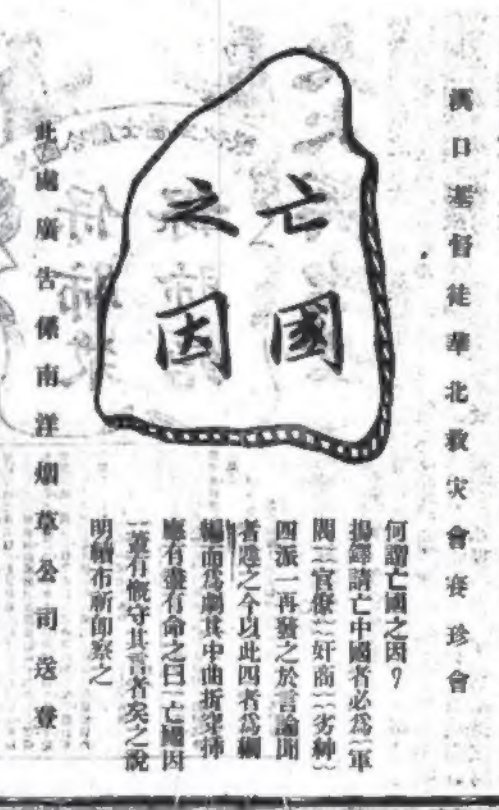 漢口基督徒華北救灾會賽珍會
亡國
之因
何謂亡國之因？
揚鐸謂亡中國者必爲：軍
閥：官僚：奸商：劣紳：
四派一再發之於言論聞
者韙之今以此四者爲綱
編而爲劇其中曲折穿揷
應有盡有命之曰：亡國因
：蓋有慨乎其言者矣之說
明續布新即察之
此處廣告係南洋烟草公司送登